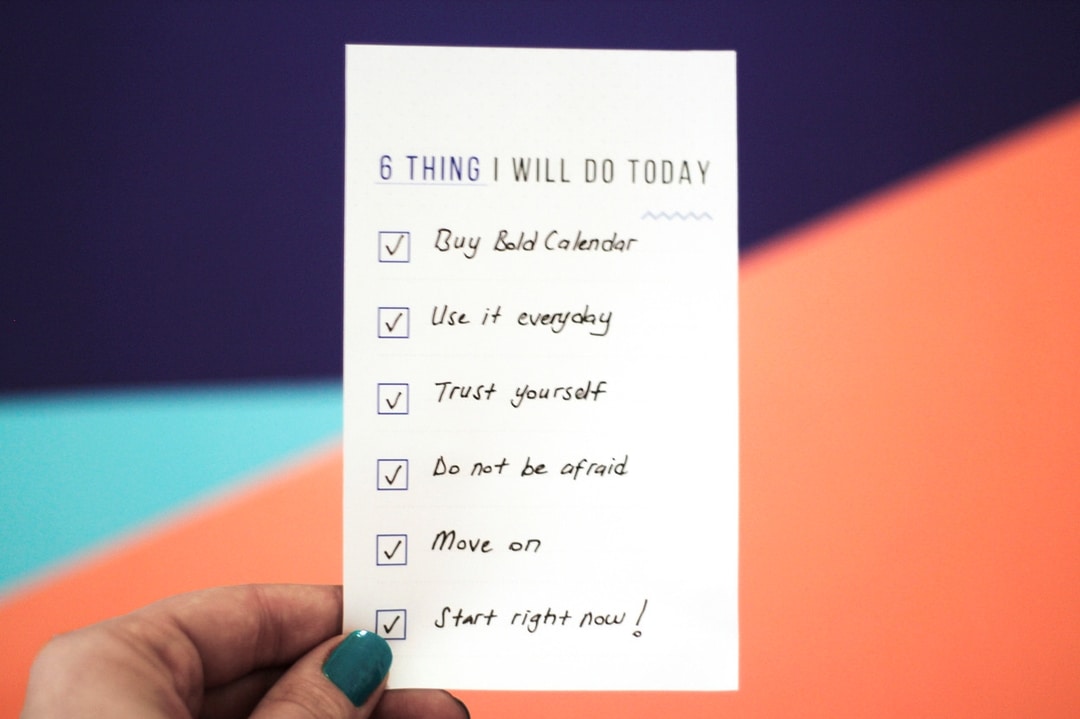 6 THING I WILL DO TODAY
Buy Bold Calendar
Use it everyday
Trust yourself
Do not be afraid
Move on
Start right now!